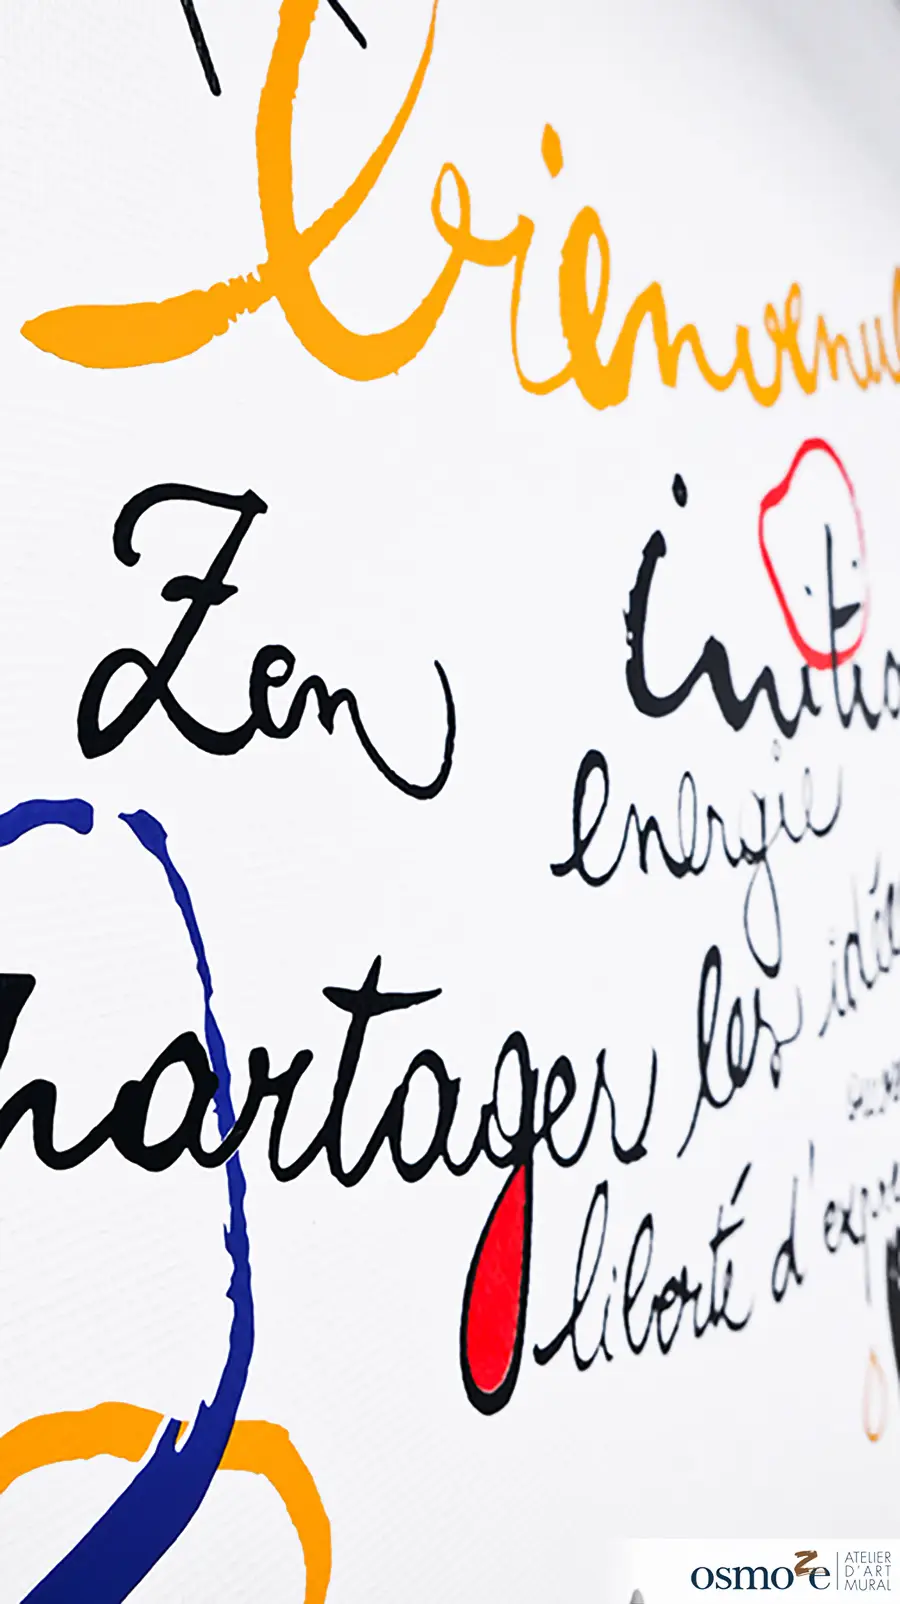 bienvenu
Zen
initia
énergie
partager les idée
liberté d'expre
osmoze
ATELIER
D'ART
MURAL